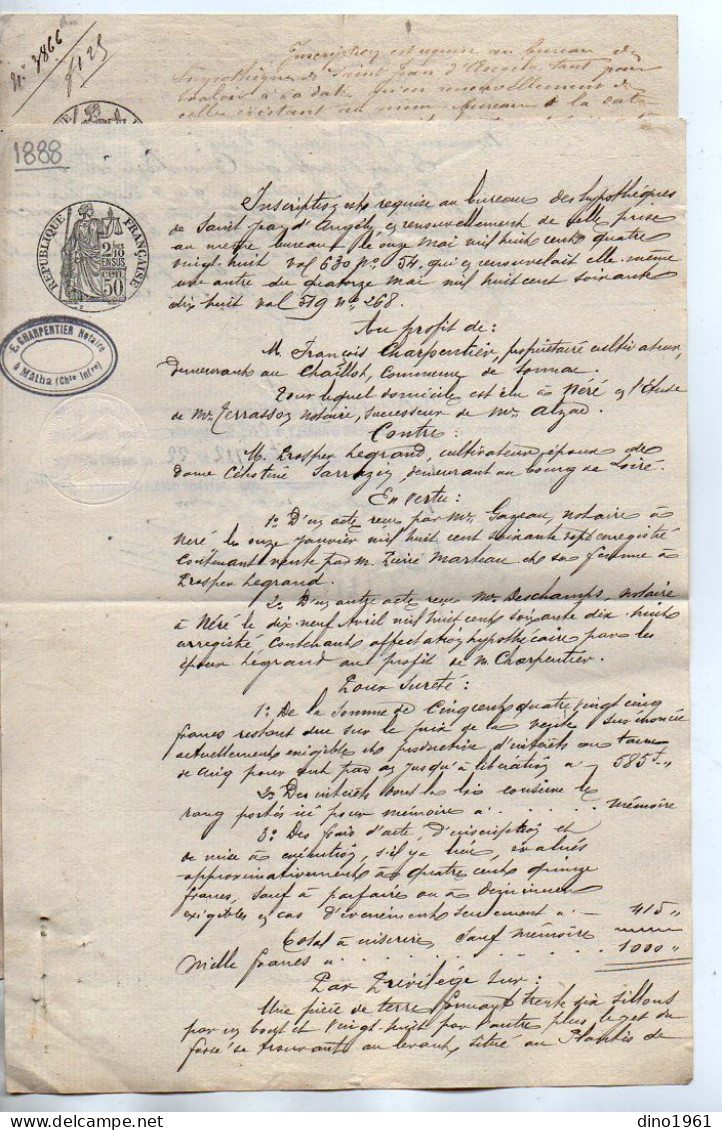 N° 3866
f 1 25
Inscription est requise au bureau des
hypothèques de Saint Jean d'Angély tant pour
valoir à sa date qu'en renouvellement de
celle existant au même bureau à la date
1888
RÉPUBLIQUE FRANÇAISE
2/10 EN SUS
50
E. CHARPENTIER Notaire
à Matha (Chte Infre)
Inscription est requise au bureau des hypothèques
de Saint jean d'Angély en renouvellement de celle prise
au même bureau le onze mai mil huit cent quatre
vingt huit vol 630 n° 54, qui en renouvelait elle même
une autre du quatorze mai mil huit cent soixante
dix huit vol 519 n° 268.
Au profit de :
M. François Charpentier, propriétaire cultivateur,
demeurant au Chaillot, Commune de Sonnac.
Pour lequel domicile est élu à Néré en l'étude
de Me Terrasson notaire, successeur de Me Alzac.
Contre :
M. Prosper Legrand, cultivateur époux de
dame Célestine Sarrazin, demeurant au bourg de Loiré.
En vertu :
1° D'un acte reçu par Me Gazeau, notaire à
Néré le onze janvier mil huit cent soixante sept enregistré
contenant vente par M. Pierre Marteau et sa femme à
Prosper Legrand.
2° D'un autre acte reçu Me Deschamps, notaire
à Néré le dix neuf Avril mil huit cent soixante dix huit
enregistré, contenant affectation hypothécaire par les
époux Legrand au profit de M. Charpentier.
Pour Sureté :
1° De la somme de Cinq cent quatre vingt cinq
francs restant due sur le prix de la vente sus énoncée
actuellement exigible et productive d'intérêts au taux
de cinq pour cent par an jusqu'à libération ci — 585 f "
2° Des intérêts dont la loi conserve le
rang portés ici pour mémoire ci . . . . mémoire
3° Des frais d'acte, d'inscription et
de mise à exécution, s'il y a lieu, évalués
approximativement à quatre cent quinze
francs, sauf à parfaire ou à diminuer
exigibles en cas d'évènement seulement ci — 415 "
Total à inscrire, sauf mémoire
Mille francs ci . . . . . 1000 "
Par Privilège sur :
Une pièce de terre formant trente six sillons
par un bout et vingt huit par l'autre plus le jet du
fossé se trouvant au levant situé au Plantis de
dino1961